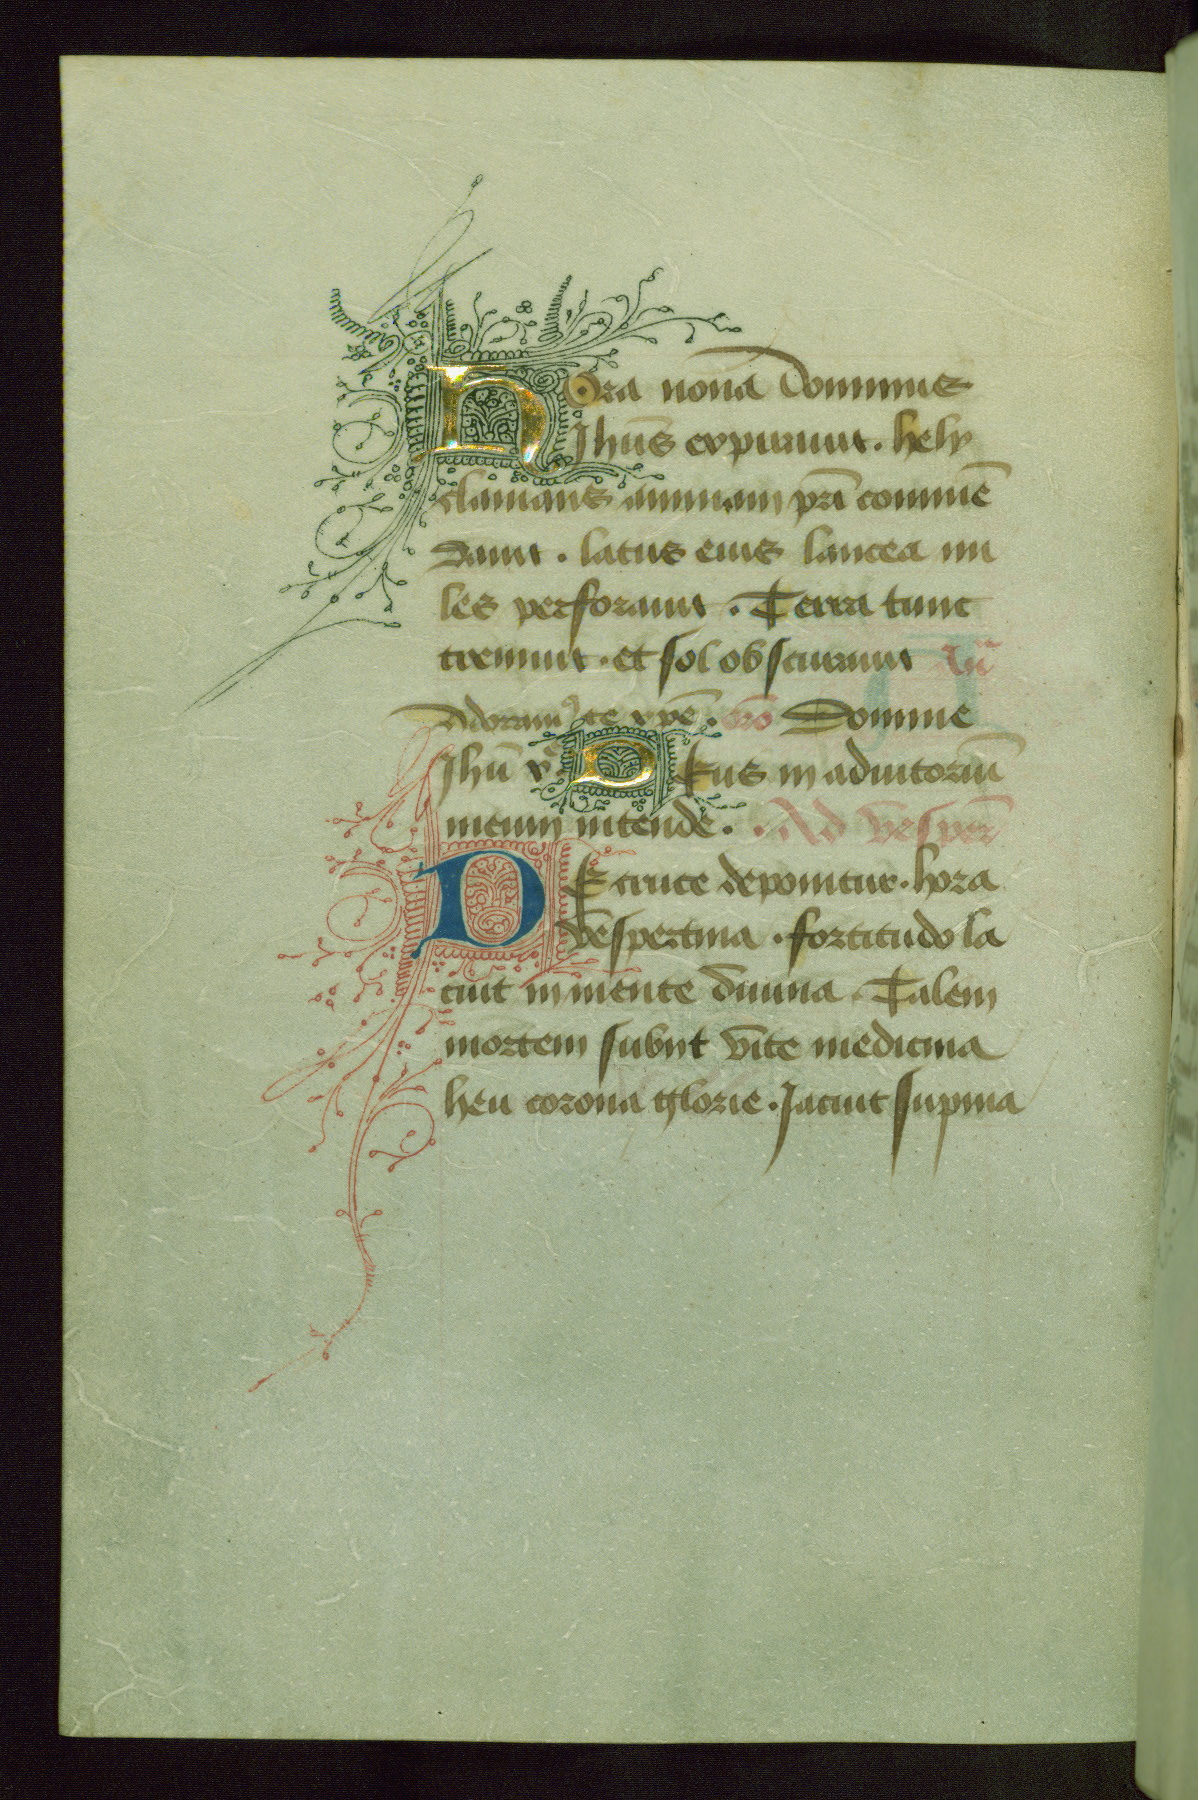 Hora nona Dominus
Jhūs expirauit. hely
clamans animam pr̄i commē
dauit. latus eius lancea mi
les perforauit. Terra tunc
tremuit. et sol obscurauit Añ
Adoramꝰ te xp̄e. or̄o Domine
Jhū x̄ Deus in adiutoriū
meum intende. Ad vesper̄
De cruce deponitur. hora
vespertina. fortitudo la
tuit in mente diuina. Talem
mortem subiit vite medicina
heu corona glorie. Jacuit supina